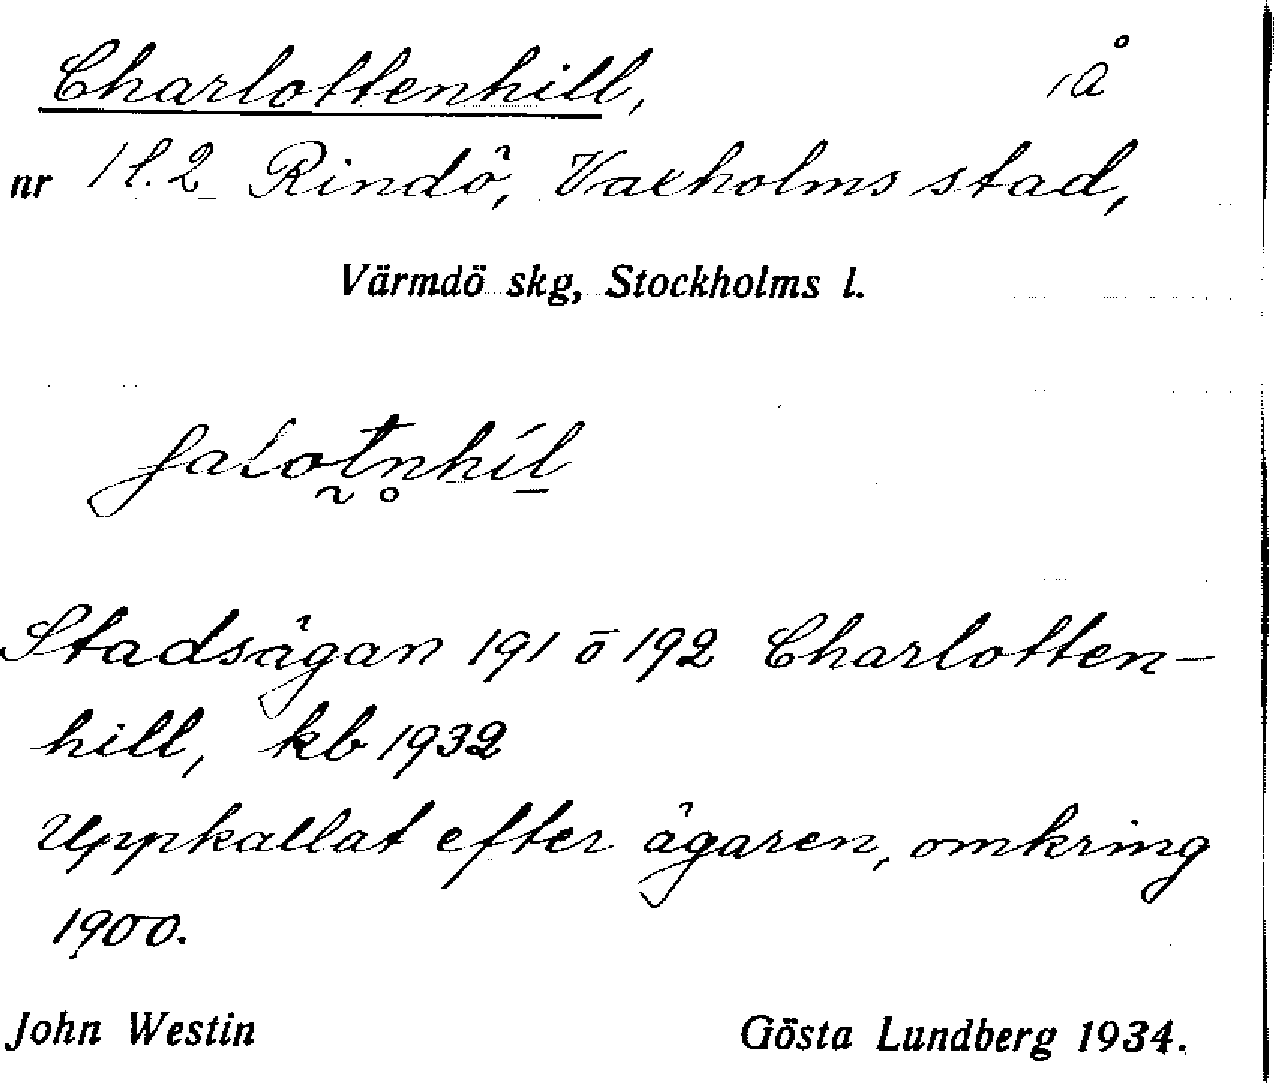 Charlottenhill, å
nr 1 l. 2 Rindö, Vaxholms stad,
Värmdö skg, Stockholms l.
Stadsägan 191 o 192 Charlotten-
hill, kb 1932
Uppkallat efter ägaren, omkring
1900.
John Westin Gösta Lundberg 1934.